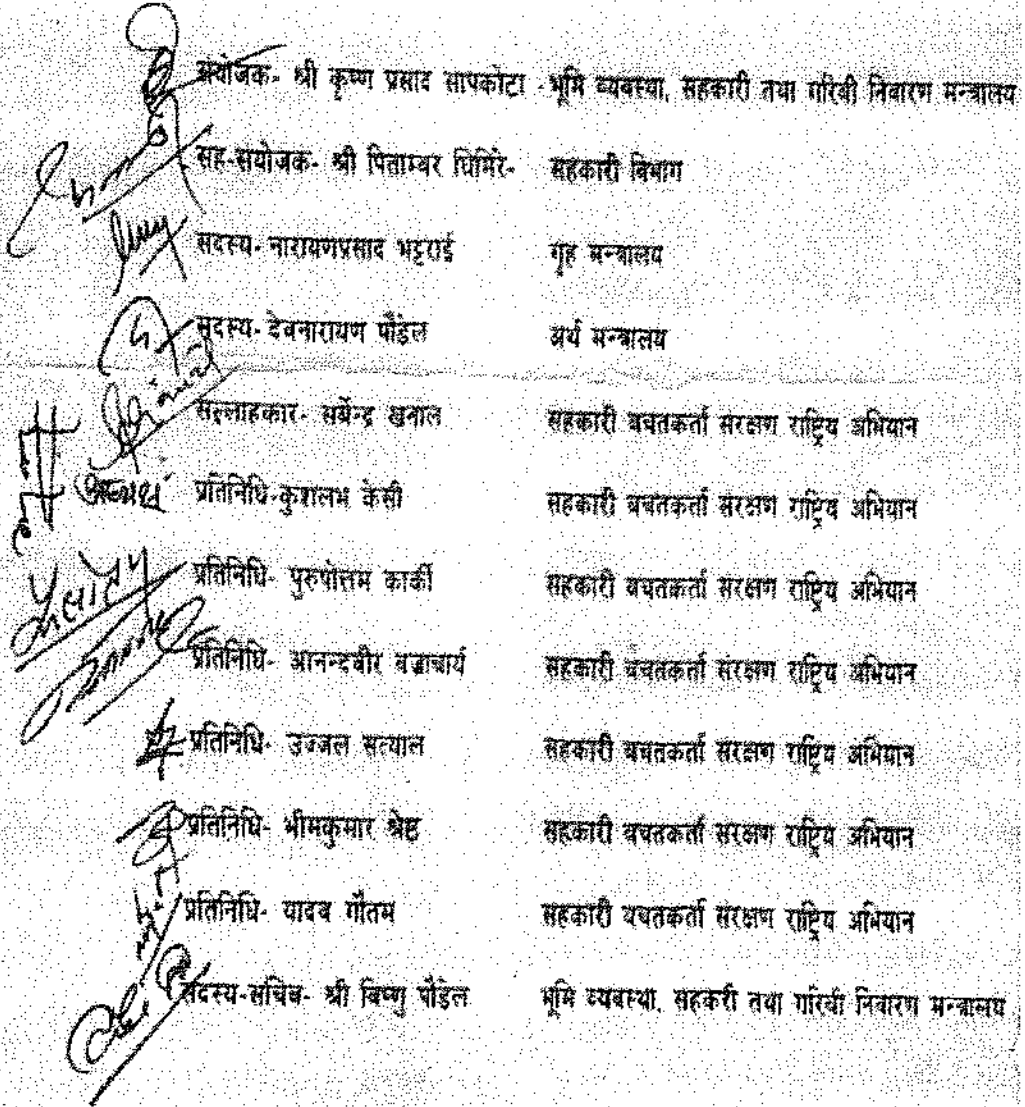 संयोजक- श्री कृष्ण प्रसाद सापकोटा - भूमि व्यवस्था, सहकारी तथा गरिवी निवारण मन्त्रालय
सह-सयोजक- श्री पिताम्बर घिमिरे- सहकारी विभाग
सदस्य- नारायणप्रसाद भट्टराई गृह मन्त्रालय
सदस्य- देवनारायण पौडेल अर्थ मन्त्रालय
सल्लाहकार- सर्मेन्द्र खनाल सहकारी बचतकर्ता संरक्षण राष्ट्रिय अभियान
प्रतिनिधि-कुशलभ केसी सहकारी बचतकर्ता संरक्षण राष्ट्रिय अभियान
प्रतिनिधि- पुरुषोत्तम कार्की सहकारी बचतकर्ता संरक्षण राष्ट्रिय अभियान
प्रतिनिधि- आनन्दवीर बज्राचार्य सहकारी बचतकर्ता संरक्षण राष्ट्रिय अभियान
प्रतिनिधि- उज्जल सत्याल सहकारी बचतकर्ता संरक्षण राष्ट्रिय अभियान
प्रतिनिधि- भीमकुमार श्रेष्ठ सहकारी बचतकर्ता संरक्षण राष्ट्रिय अभियान
प्रतिनिधि- यादव गौतम सहकारी बचतकर्ता संरक्षण राष्ट्रिय अभियान
सदस्य-सचिब- श्री बिष्णु पौडेल भूमि व्यवस्था, सहकरी तथा गरिवी निवारण मन्त्रालय